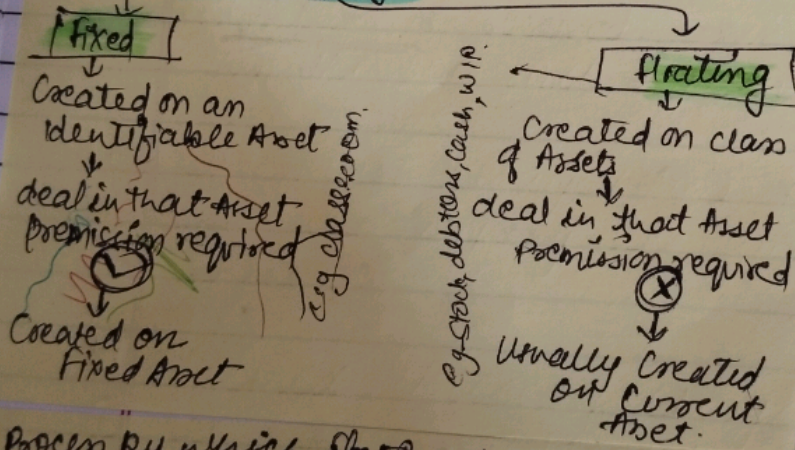 fixed
Created on an
identifiable Asset
deal in that Asset
premission required
Created on
fixed Asset
e.g classroom.
floating
Eg-stock, debtors, cash, WIP.
Created on class
of Assets
deal in that Asset
premission required
X
Usually Created
on Current
Asset.